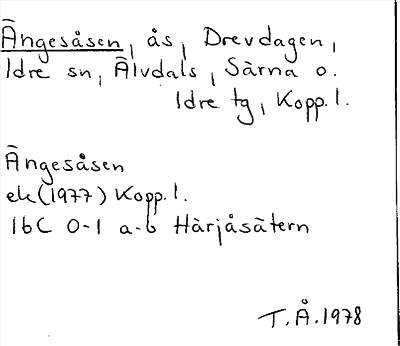 Ängesåsen, ås, Drevdagen,
Idre sn, Älvdals, Särna o.
Idre tg, Kopp. l.
Ängesåsen
ek (1977) Kopp. l.
16C 0-1 a-b Härjåsätern
T.Å. 1978